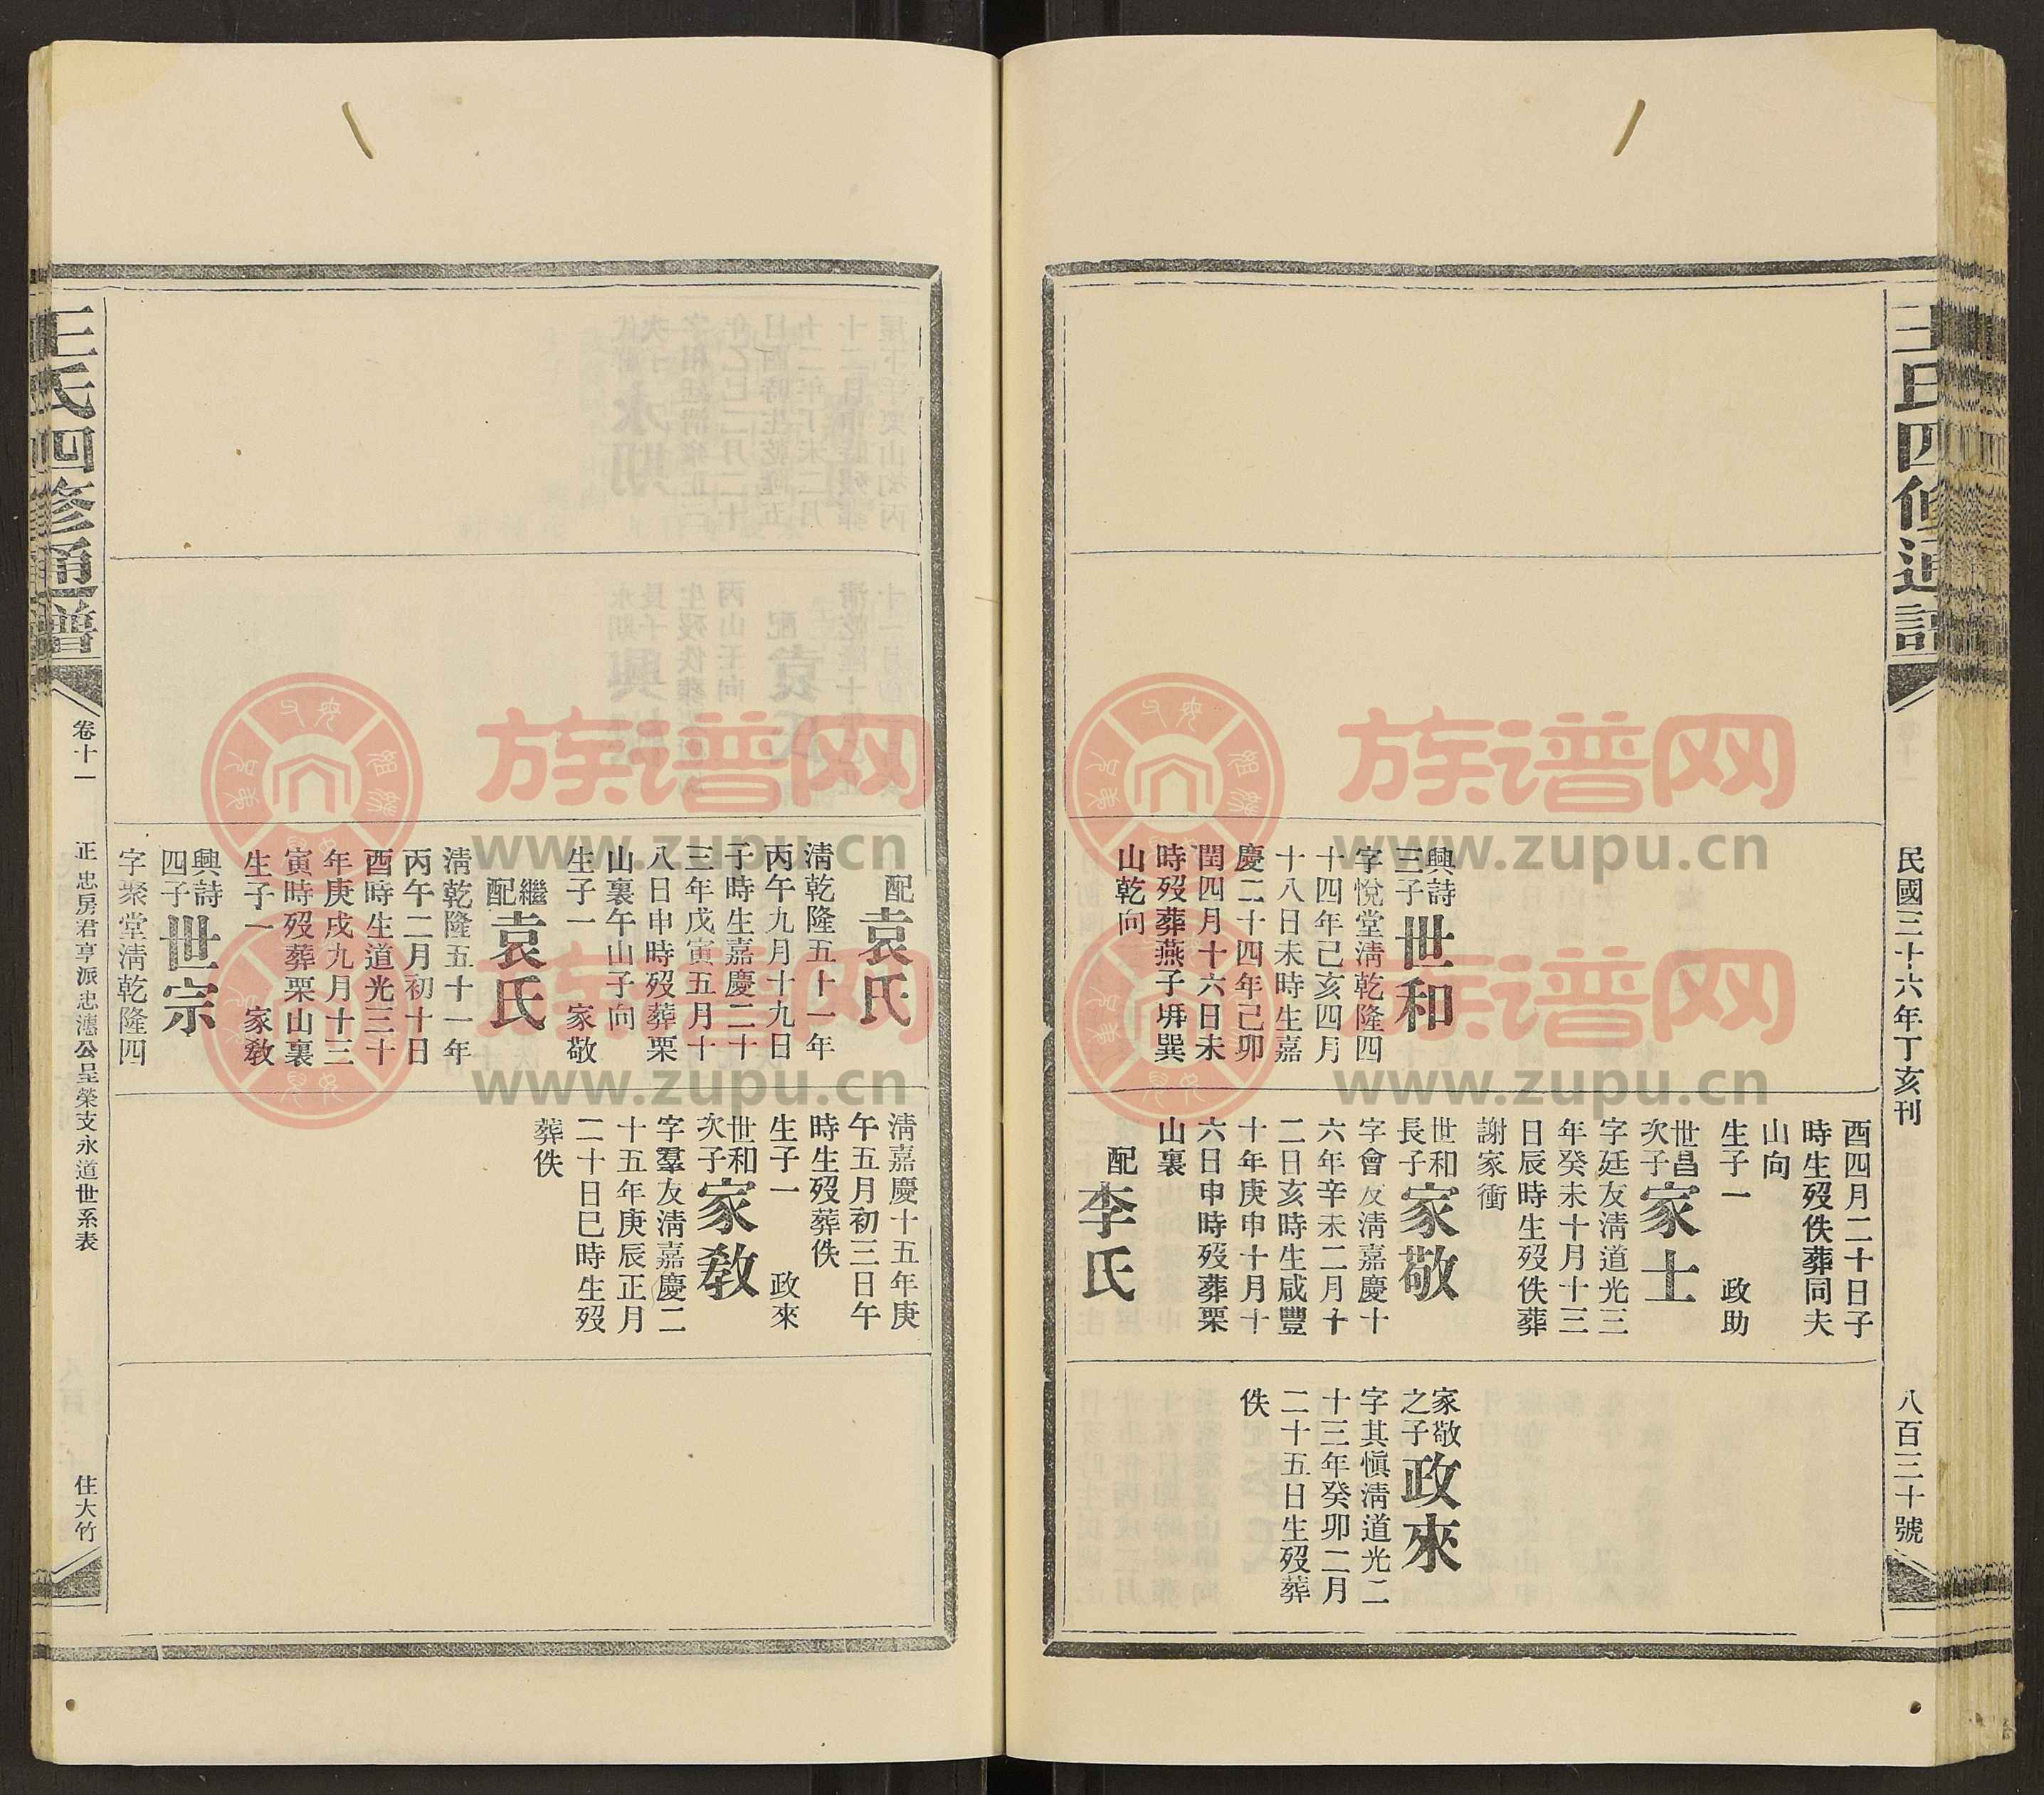 王氏四修通譜
民國三十六年丁亥刊
八百三十號
興詩
三子
世和
字悅堂淸乾隆四
十四年己亥四月
十八日未時生嘉
慶二十四年己卯
閏四月十六日未
時歿葬燕子坍巽
山乾向
酉四月二十日子
時生歿佚葬同夫
山向
生子一 政助
世昌
次子
家士
字廷友淸道光三
年癸未十月十三
日辰時生歿佚葬
謝家衝
世和
長子
家敬
字會友淸嘉慶十
六年辛未二月十
二日亥時生咸豐
十年庚申十月十
六日申時歿葬栗
山裏
配
李氏
家敬
之子
政來
字其愼淸道光二
十三年癸卯二月
二十五日生歿葬
佚
配
袁氏
淸乾隆五十一年
丙午九月十九日
子時生嘉慶二十
三年戊寅五月十
八日申時歿葬栗
山裏午山子向
生子一 家敬
繼
配
袁氏
淸乾隆五十一年
丙午二月初十日
酉時生道光三十
年庚戌九月十三
寅時歿葬栗山裏
生子一 家敎
興詩
四子
世宗
字聚堂淸乾隆四
淸嘉慶十五年庚
午五月初三日午
時生歿葬佚
生子一 政來
世和
次子
家敎
字羣友淸嘉慶二
十五年庚辰正月
二十日巳時生歿
葬佚
王氏四修通譜
卷十一
正忠房君亨派忠瀗公呈榮支永道世系表
住大竹
族谱网
www.zupu.cn
族谱网
www.zupu.cn
族谱网
www.zupu.cn
族谱网
www.zupu.cn